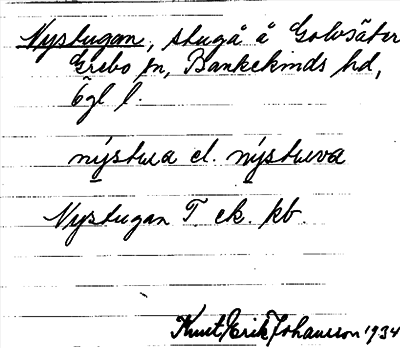 Nystugan, stuga å Golvsäter
Grebo sn, Bankekinds hd,
Ögl l.
nýstua el. nýstuva
Nystugan T. ek. kb.
Knut Erik Johansson 1934